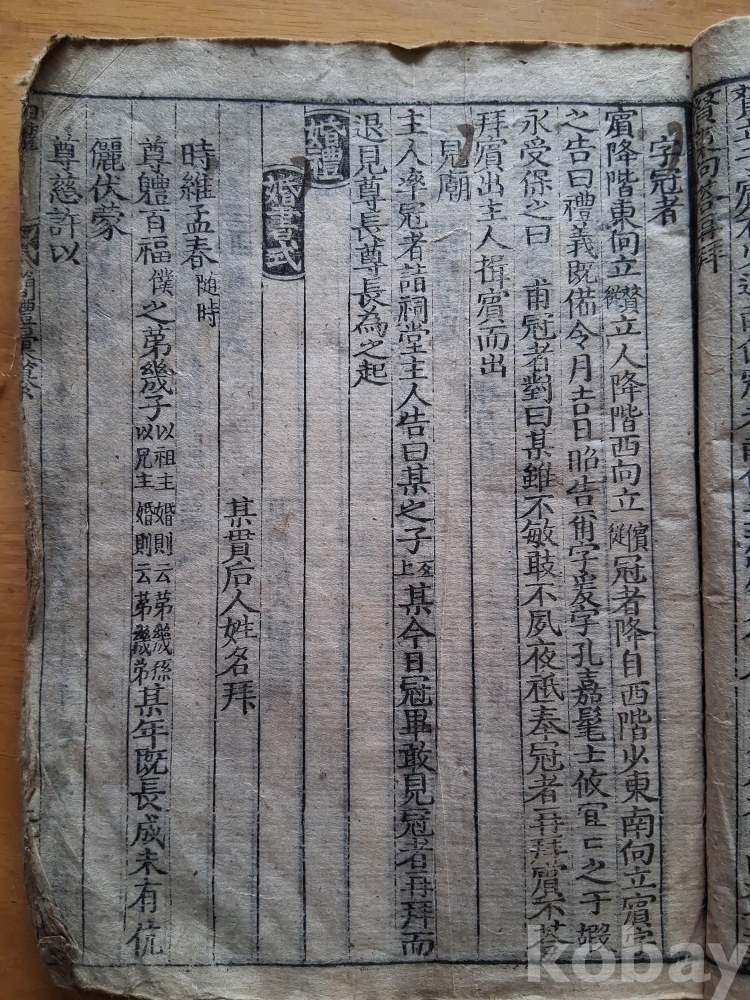 字冠者
賓降階東向立贊立人降階西向立儐從冠者降自西階少東南向立賓字
之告曰禮義既備令月吉日昭告甭字爰字孔嘉髦士攸宜宜之于嘏
永受保之曰 甫冠者對曰某雖不敏敢不夙夜祇奉冠者再拜賓不荅
拜賓出主人揖賓而出
見廟
主人率冠者詣祠堂主人告曰某之子某今日冠畢敢見冠者再拜而
退見尊長尊長為之起
婚禮
婚書式
某貫后人姓名拜
時維孟春隨時
尊軆百福僕之苐幾子以祖主婚則云苐幾孫以兄主婚則云苐幾弟某年既長成未有伉
儷伏蒙
尊慈許以
kobay